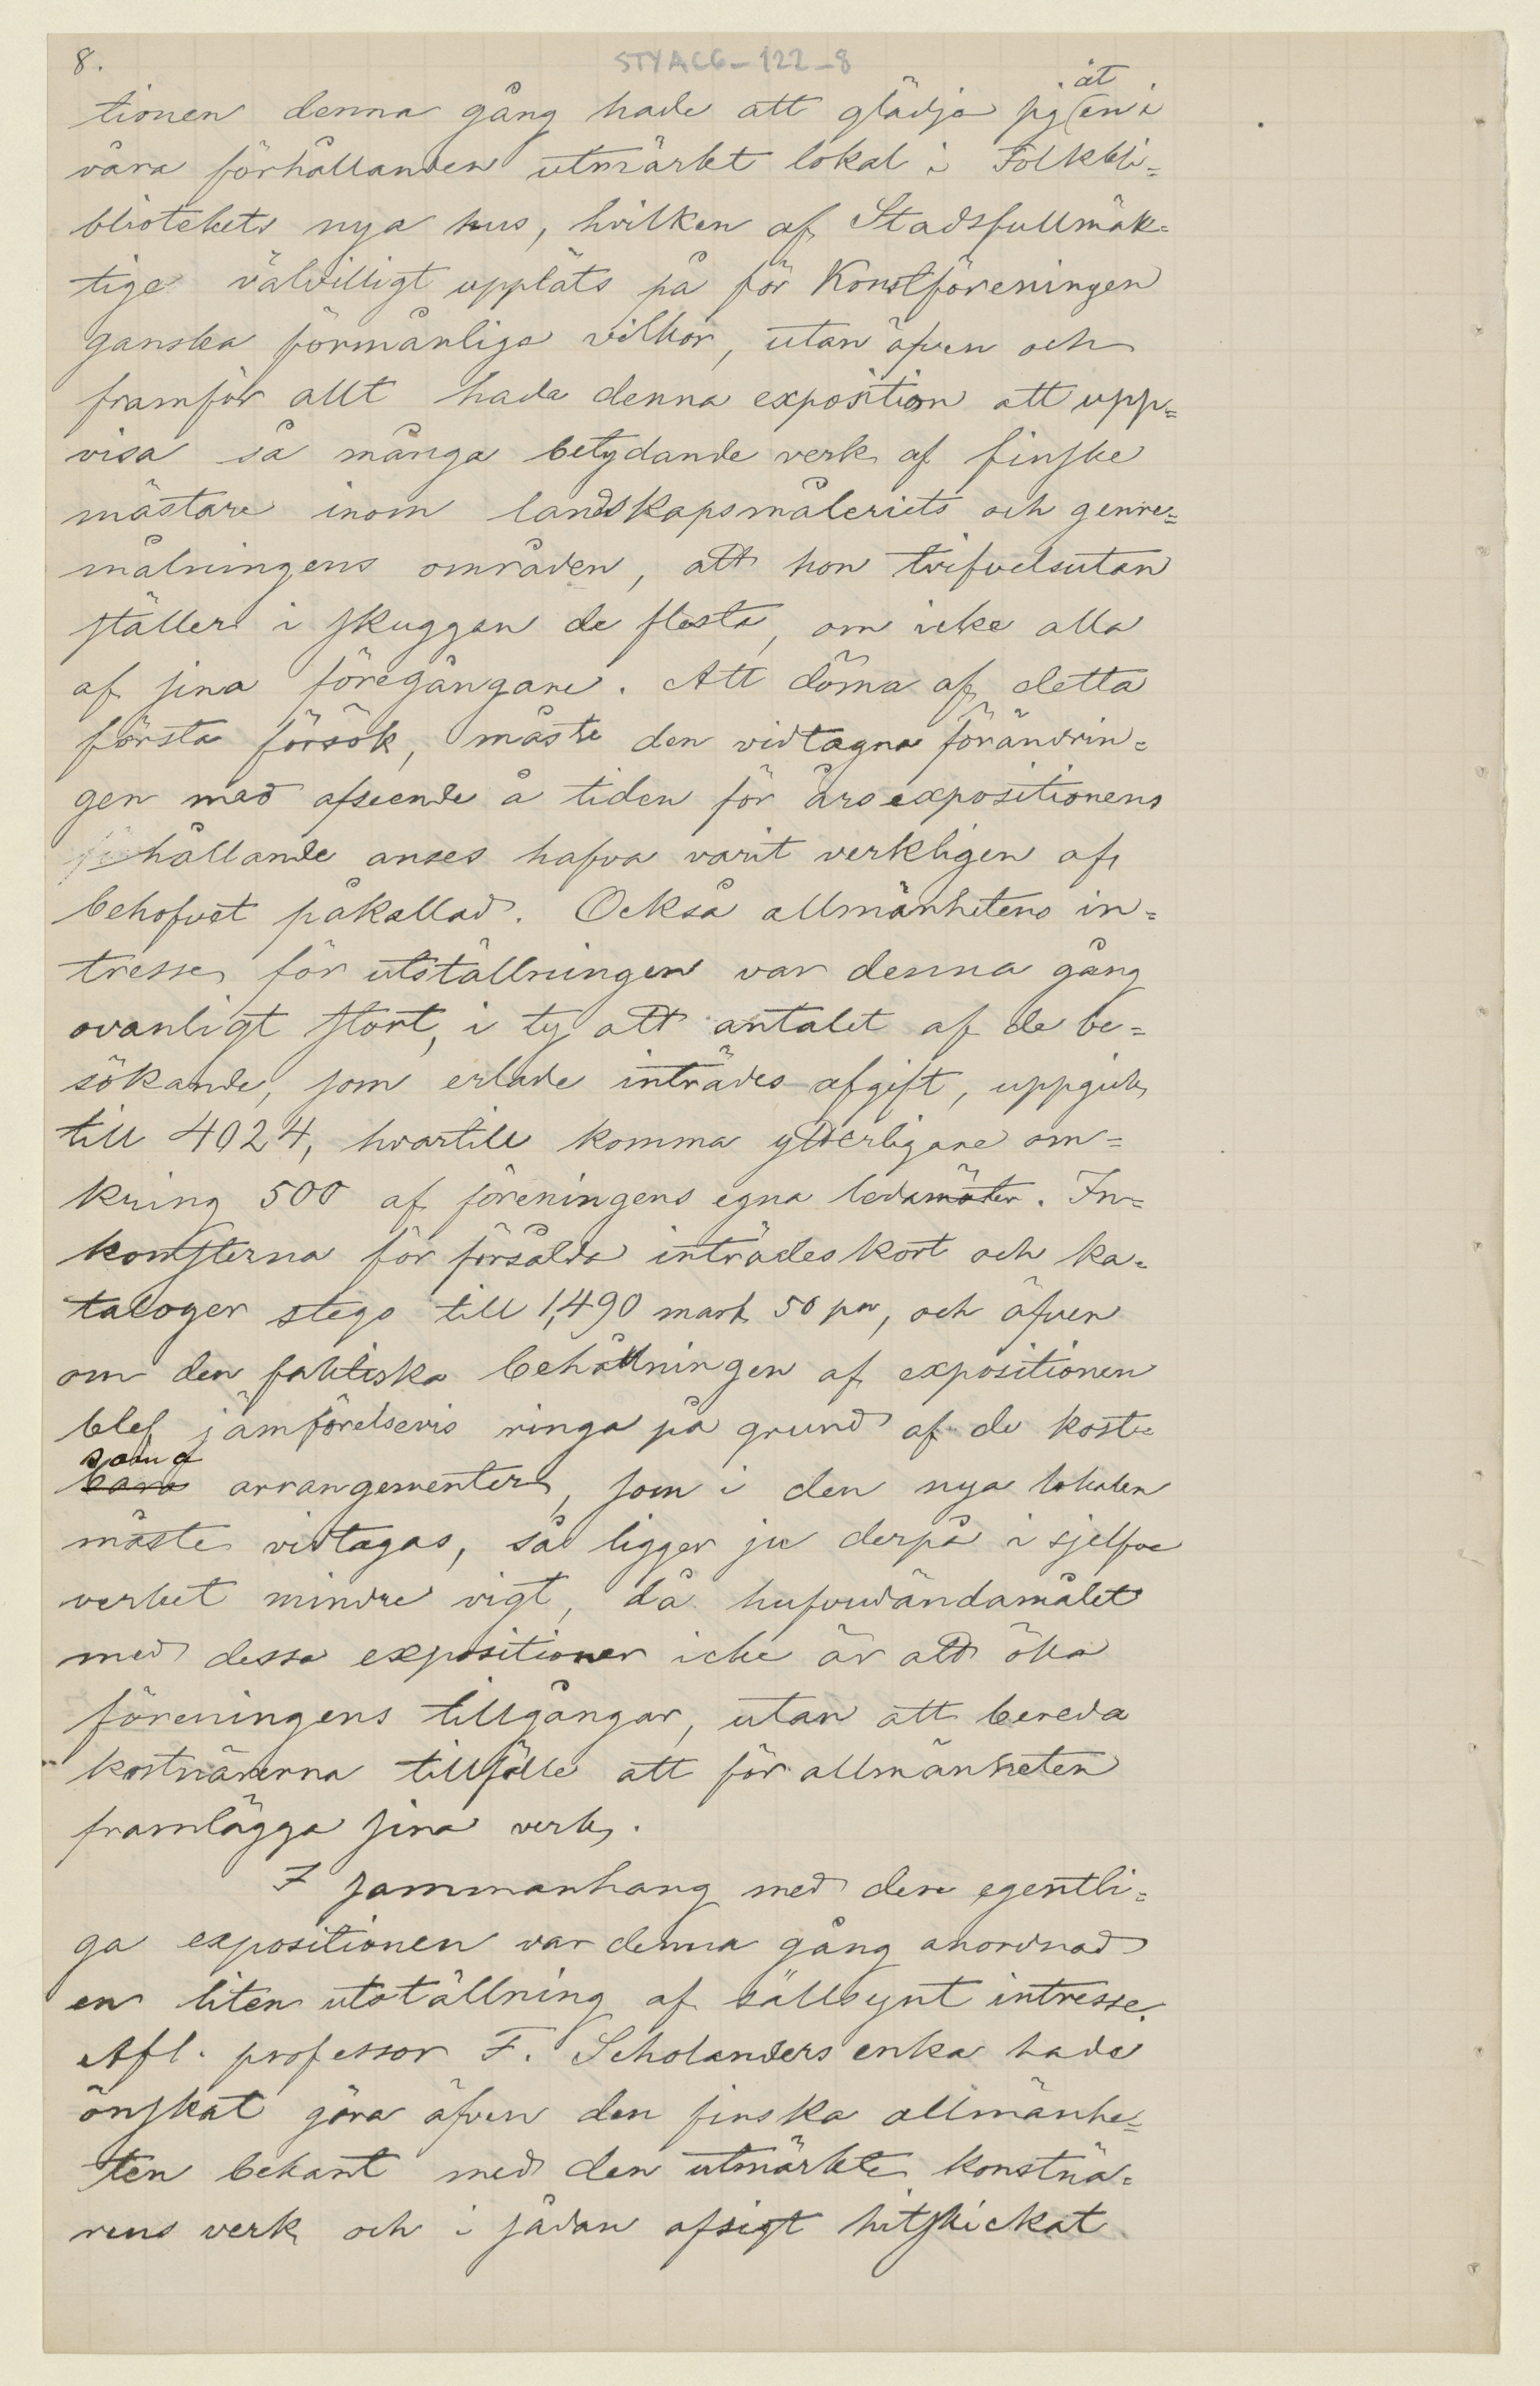 8.
STYAC6-122-8
åt
tionen denna gång hade att glädja sig en i
våra förhållanden utmärkt lokal i Folkbli=
bliotekets nya hus, hvilken af Stadsfullmäk=
tige välvilligt uppläts på för Konstföreningen
ganska förmånliga vilkor, utan äfven och
framför allt hade denna exposition att upp=
visa så många betydande verk af finske
mästare inom landskapsmåleriets och genre=
målningens områden, att hon tvifvelsutan
ställer i skuggan de flesta, om icke alla
af sina föregångare. Att döma af detta
första försök, måste den vidtagna förändrin=
gen med afseende å tiden för årsexpositionens
hållande anses hafva varit verkligen af
behofvet påkallad. Också allmänhetens in=
tresse för utställningen var denna gång
ovanligt stort, i ty att antalet af de be=
sökande, som erlade inträdes afgift, uppgick
till 4024, hvartill komma ytterligare om=
kring 500 af föreningens egna ledamöter. In=
komsterna för försålda inträdeskort och ka=
taloger stego till 1,490 mark 50 pn, och äfven
om den faktiska behållningen af expositionen
blef jämförelsevis ringa på grund af de kost=
samma
bara arrangementer, som i den nya lokalen
måste vidtagas, så ligger ju derpå i sjelfva
verket mindre vigt, då hufvudändamålet
med dessa expositioner icke är att öka
föreningens tillgångar, utan att bereda
kostnärerna tillfälle att för allmänheten
framlägga sina verk.
I sammanhang med den egentli=
ga expositionen var denna gång anordnad
en liten utställning af sällsynt intresse.
Afl. professor F. Scholanders enka hade
önskat göra äfven den finska allmänhe=
ten bekant med den utmärkte konstnä=
rens verk och i sådan afsigt hitskickat